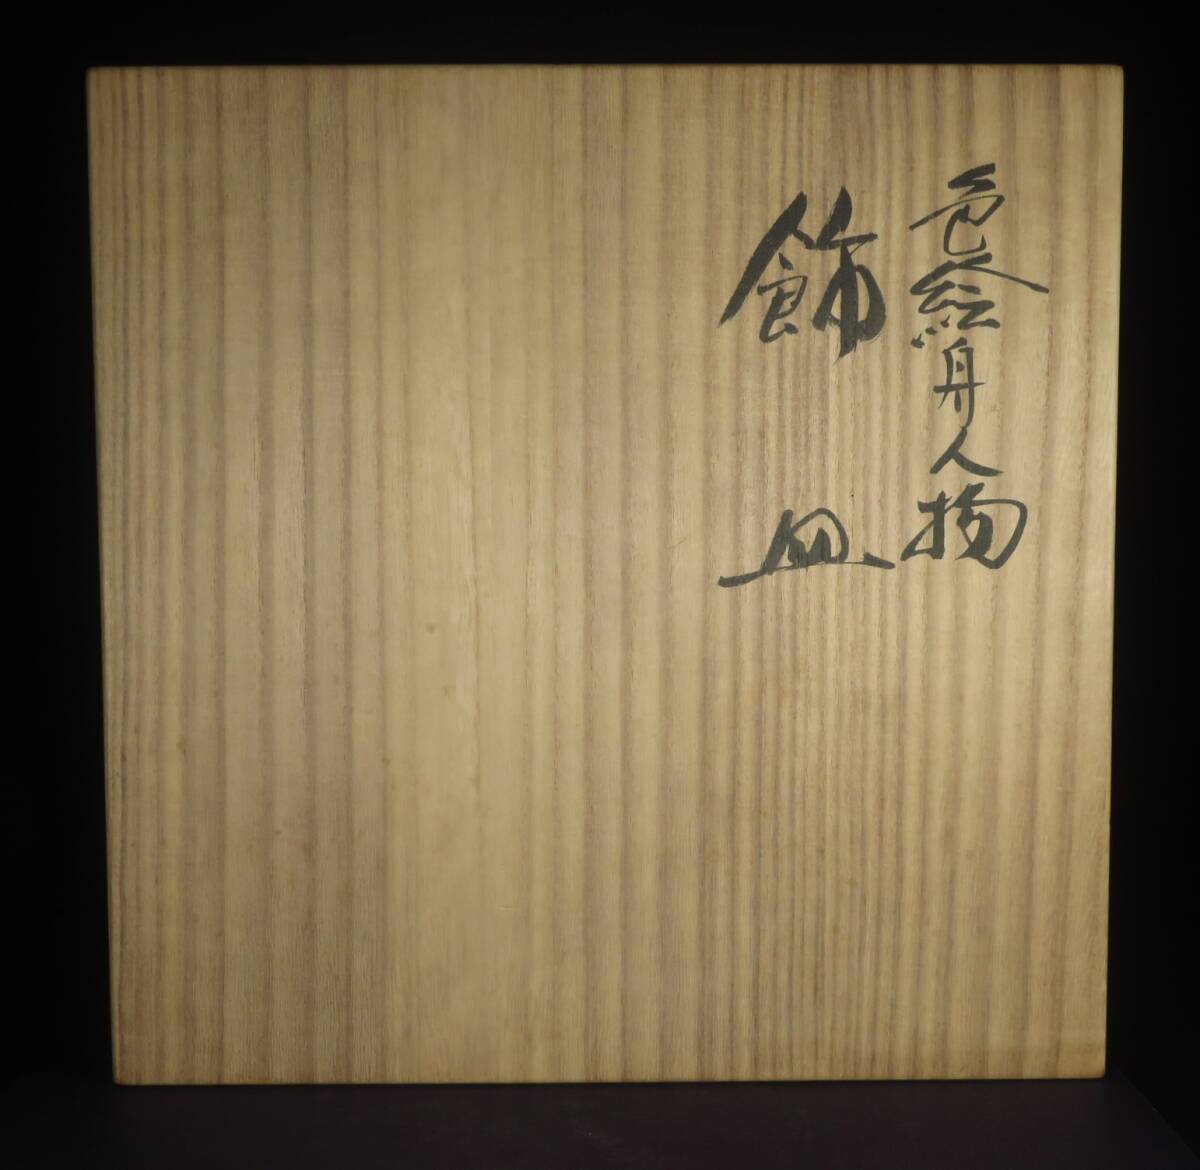 色絵舟人物
飾皿